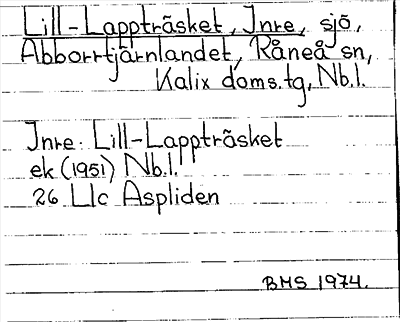 Lill-Lappträsket, Inre, sjö,
Abborrtjärnlandet, Råneå sn,
Kalix doms.tg, Nb.l.
Inre Lill-Lappträsket
ek (1951) Nb.l.
26 Llc Aspliden
BMS 1974.